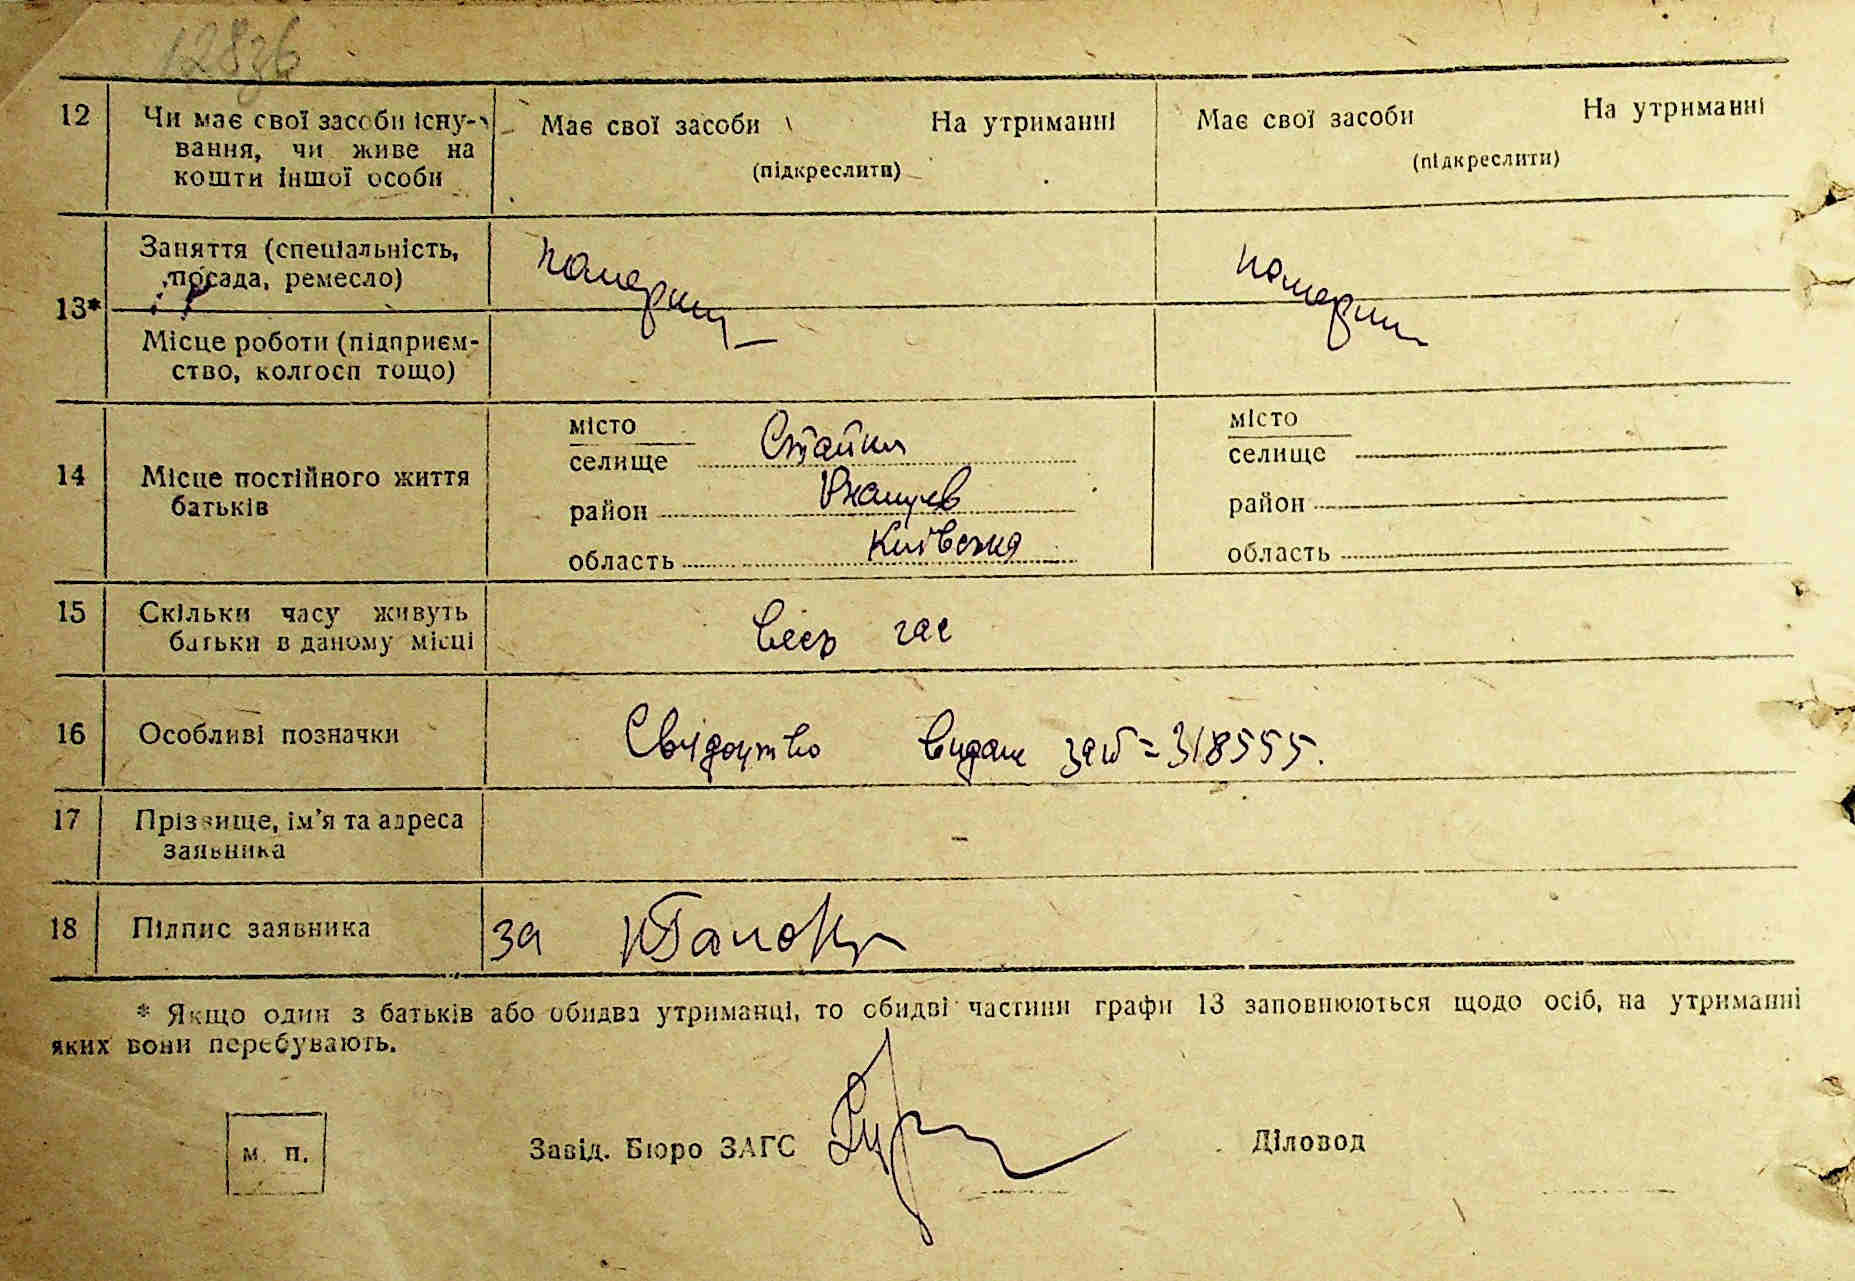 12
Чи має свої засоби існу-
вання, чи живе на
кошти іншої особи
Має свої засоби На утриманні
(підкреслити)
Має свої засоби На утриманні
(підкреслити)
13*
Заняття (спеціальність,
посада, ремесло)
Місце роботи (підприєм-
ство, колгосп тощо)
померли
померли
14
Місце постійного життя
батьків
місто
селище Стайки
район
область Київська
місто
селище
район
область
15
Скільки часу живуть
батьки в даному місці
весь час
16
Особливі позначки
Свідоцтво видане за № 318555.
17
Прізвище, ім'я та адреса
заявника
–
18
Підпис заявника
за
* Якщо один з батьків або обидва утриманці, то обидві частини графи 13 заповнюються щодо осіб, на утриманні
яких вони перебувають.
м. п.
Завід. Бюро ЗАГС
Діловод